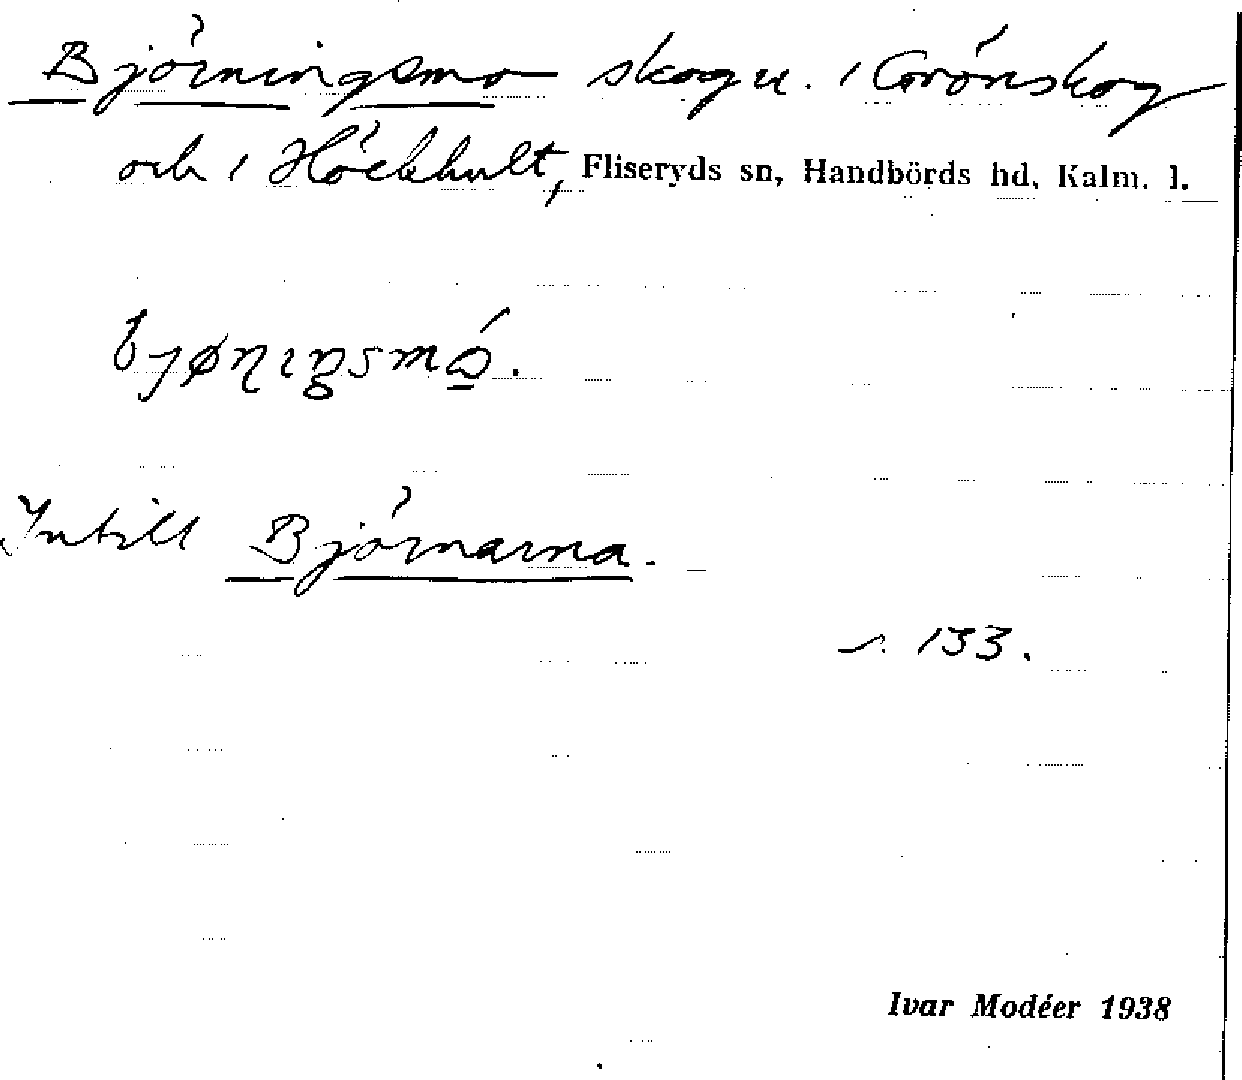 Björningsmo skogu. i Grönskog
och i Höckhult, Fliseryds sn, Handbörds hd, Kalm. l.
Intill Björnarna.
s. 133.
Ivar Modéer 1938